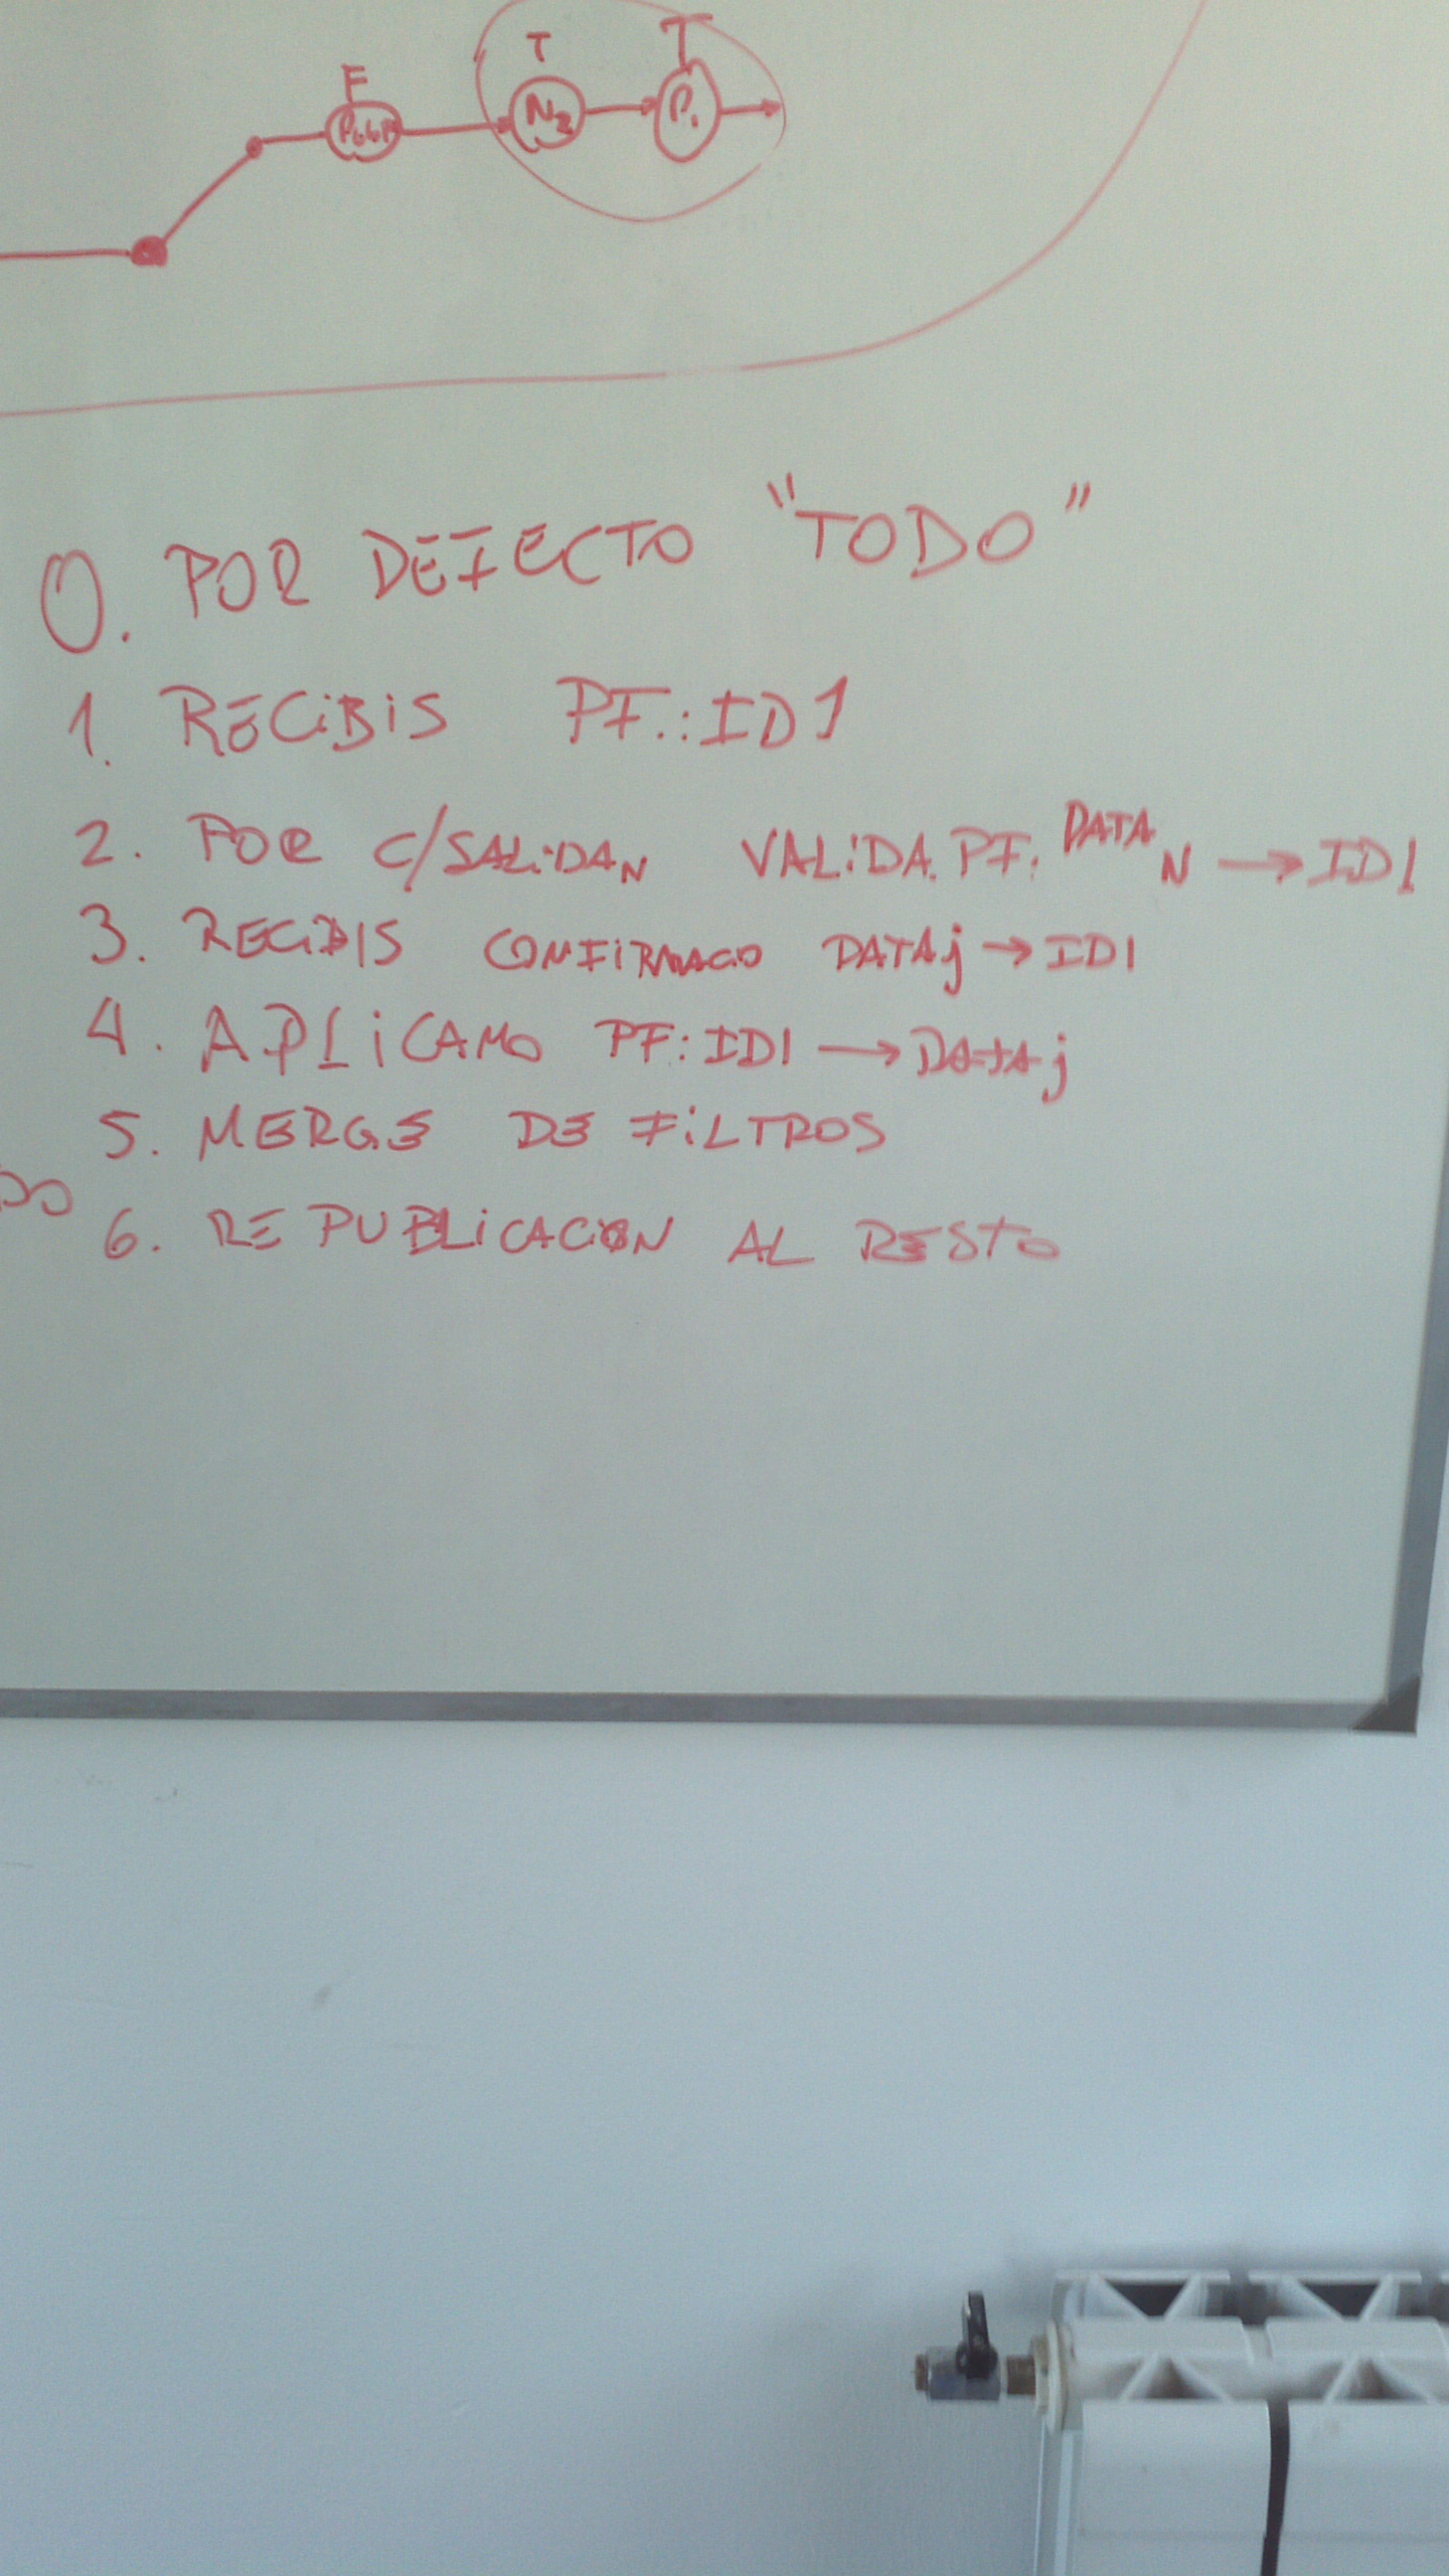 T
T
F
N2
P1
0. POR DEFECTO "TODO"
1. RECIBIS PF.:ID1
2. POR C/SALIDAN VALIDA.PF: DATA N → ID1
3. RECIBIS CONFIRMACO DATAj → ID1
4. APLICAMO PF:ID1 → DATAj
5. MERGE DE FILTROS
DO
6. RE PUBLICACION AL RESTO